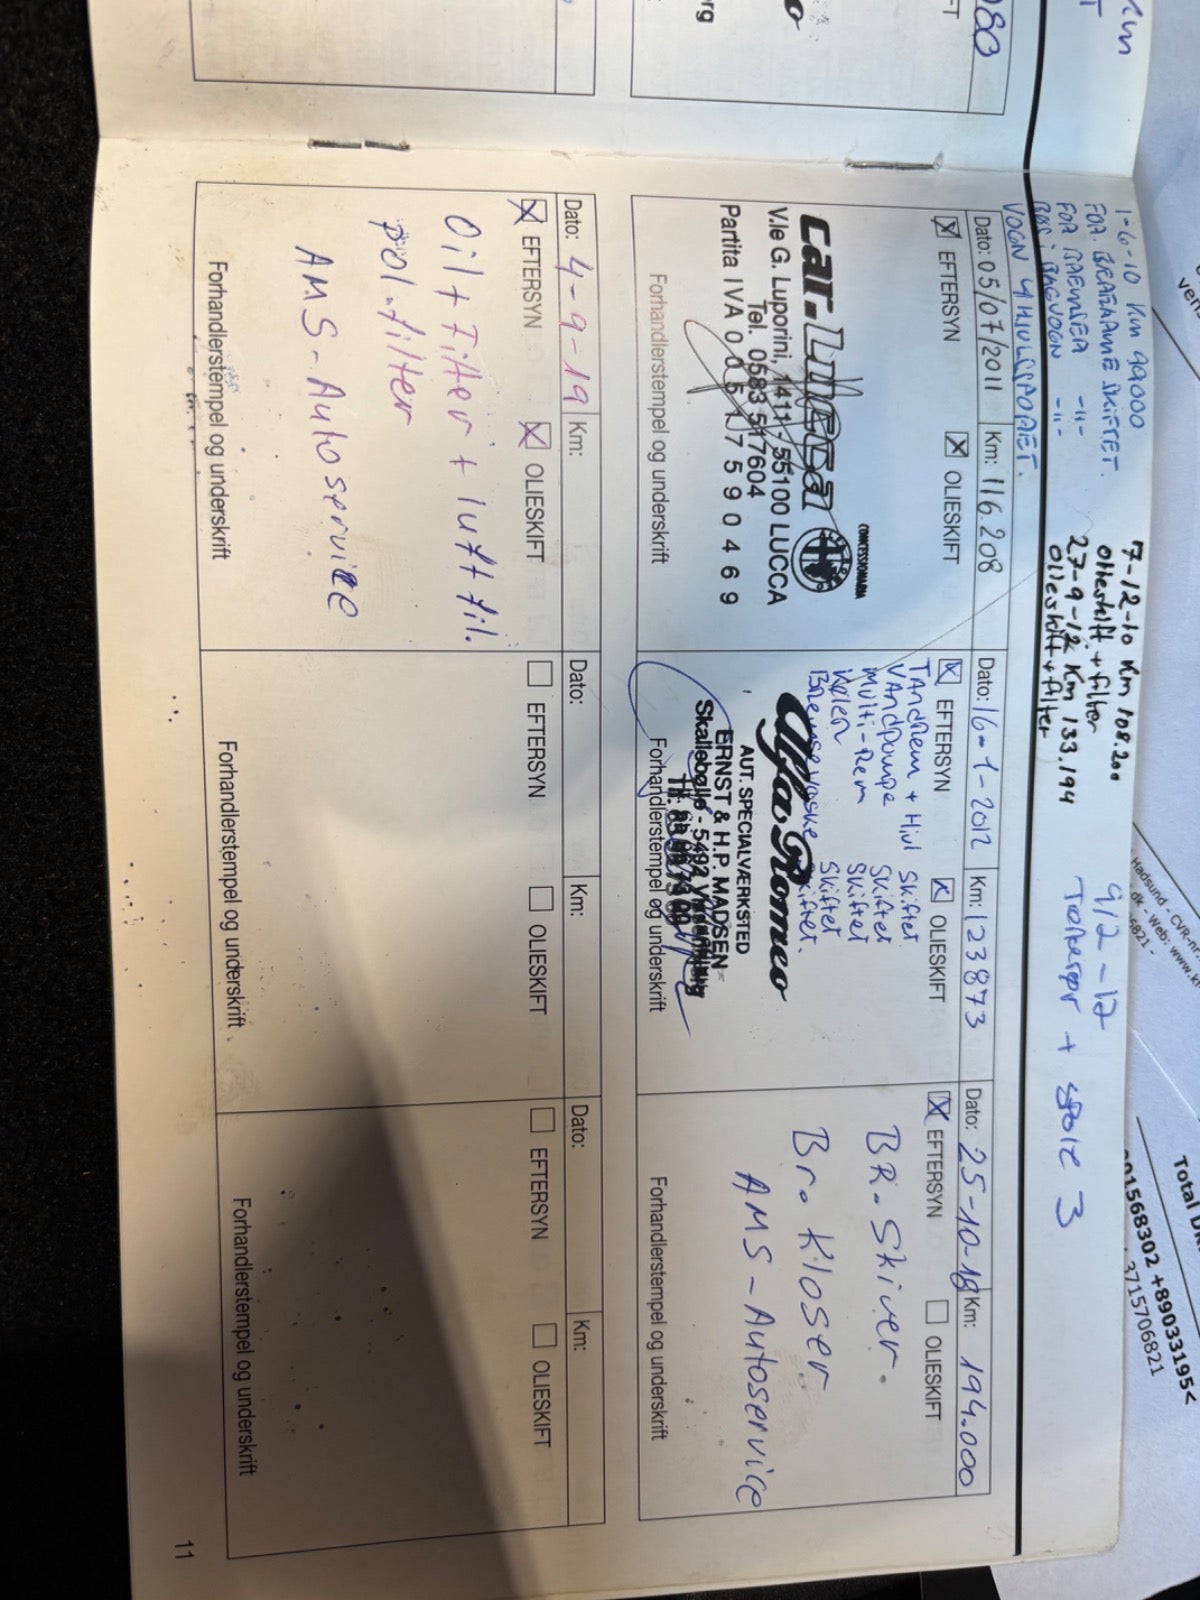 Km
T
080
FT
rg
1-6-10 Km 99000
FOR. BREAARME SKIFTET.
FOR BREMSER -"-
BØS i BAGVOGN -"-
VOGN 4 HJULSPORET.
7-12-10 Km 108.200
olieskift + filter
27-9-12 Km 133.194
olieskift + filter
9/2-12
+ spole 3
Dato: 05/07/2011 Km: 116.208
EFTERSYN OLIESKIFT
CONCESSIONARIA
car.Lucca
V.le G. Luporini, 1411 - 55100 LUCCA
Tel. 0583 517604
Partita IVA 0 0 5 1 7 5 9 0 4 6 9
Forhandlerstempel og underskrift
Dato: 16-1-2012 Km: 123873
EFTERSYN OLIESKIFT
TANDREM + Hjul skiftet
VANDPUMPE skiftet
MULTi-Rem skiftet
Køler skiftet
Bremsevæske skiftet.
Alfa Romeo
AUT. SPECIALVÆRKSTED
ERNST & H.P. MADSEN
Skallebølle - 5492 Vissenbjerg
Forhandlerstempel og underskrift
Dato: 25-10-18 Km: 194.000
EFTERSYN OLIESKIFT
BR. Skiver.
Br. Kloser
AMS-Autoservice
Forhandlerstempel og underskrift
Dato: 4-9-19 Km:
EFTERSYN OLIESKIFT
Oil + Filter + luftfil.
pol.filter
AMS-Autoservice
Forhandlerstempel og underskrift
Dato: Km:
EFTERSYN OLIESKIFT
Forhandlerstempel og underskrift
Dato: Km:
EFTERSYN OLIESKIFT
Forhandlerstempel og underskrift
11
Hadsund - CVR-nr.
dk - Web: www.k
6821 -
Total
01568302 +89033195<
3715706821